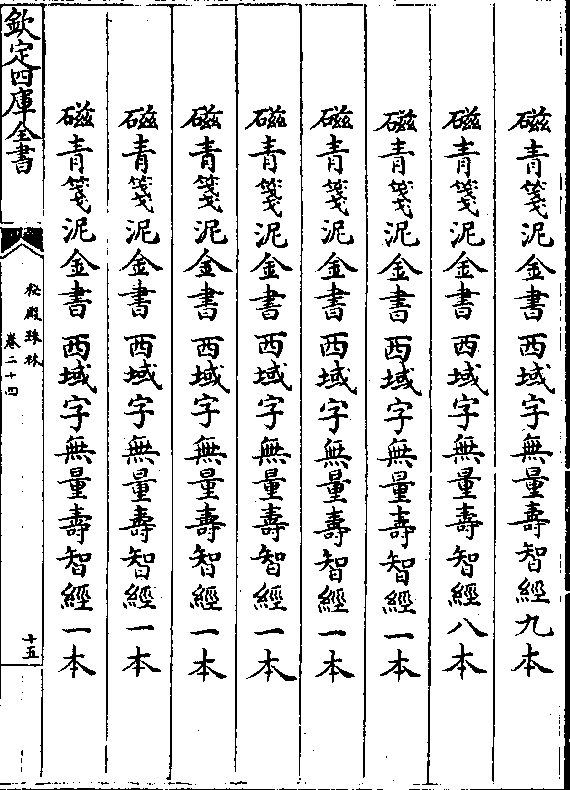 磁青箋泥金書西域字無量壽智經九本
磁青箋泥金書西域字無量壽智經八本
磁青箋泥金書西域字無量壽智經一本
磁青箋泥金書西域字無量壽智經一本
磁青箋泥金書西域字無量壽智經一本
磁青箋泥金書西域字無量壽智經一本
磁青箋泥金書西域字無量壽智經一本
磁青箋泥金書西域字無量壽智經一本
欽定四庫全書
秘殿珠林
卷二十四
十五